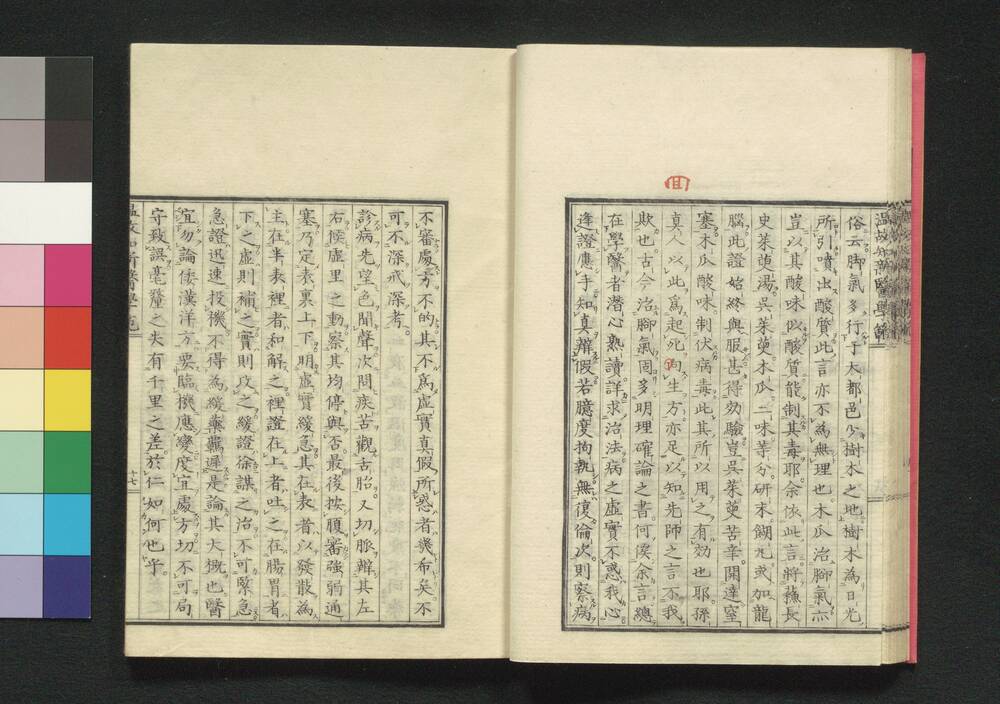 俗云脚氣多行于大都邑少樹木之地樹木為日光
所引噴出酸質此言亦不為無理也木瓜治腳氣亦
豈以其酸味以酸質能制其毒耶余依此言將蘓長
史茱萸湯吳茱萸木瓜二味等分研末餬丸或加龍
腦此證始終與服甚得効驗豈吳茱萸苦辛開達窒
塞木瓜酸味制伏病毒此其所以用之有効也耶孫
真人以此為起死回生方亦足以知先師之言不我
欺也古今治腳氣固多明理確論之書何俟余言總
在學醫者潛心熟讀詳求治法病之虛實不惑我心
逢證應手知真辨假若臆度拘執無復倫次則察病
不審處方不的其不為虛實真假所惑者幾布矣不
可不深戒深考
診病先望色聞聲次問疾苦觀舌胎又切脈辨其左
右候虛里之動察其均停與否最後按腹審強弱通
塞乃定表裏上下明虛實緩急其在表者以發散為
主在半表裡者和解之裡證在上者吐之在腸胃者
下之虛則補之實則攻之緩證徐謀之治不可緊急
急證迅速投機不得為緩藥驅遲是論其大概也醫
宜勿論倭漢洋方要臨機應變度宜處方切不可局
守致誤毫釐之失有千里之差於仁如何也乎
温故知新醫學範
十七